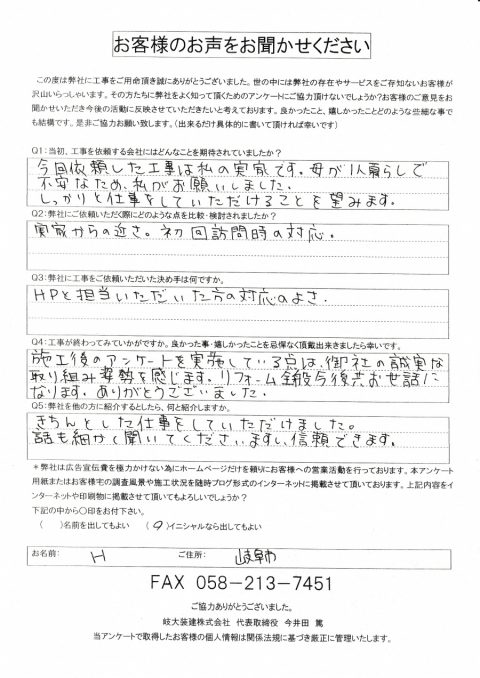 お客様のお声をお聞かせください
この度は弊社に工事をご用命頂き誠にありがとうございました。世の中には弊社の存在やサービスをご存知ないお客様が
沢山いらっしゃいます。その方たちに弊社をよく知って頂くためのアンケートにご協力頂けないでしょうか？お客様のご意見をお
聞かせいただき今後の活動に反映させていただきたいと考えております。良かったこと、嬉しかったことどのような些細な事で
も結構です。是非ご協力お願い致します。（出来るだけ具体的に書いて頂ければ幸いです）
Q1：当初、工事を依頼する会社にはどんなことを期待されていましたか？
今回依頼した工事は私の実家です。母が1人暮らしで
不安なため、私がお願いしました。
しっかりと仕事をしていただけることを望みます。
Q2：弊社にご依頼いただく際にどのような点を比較・検討されましたか？
実家からの近さ。初回訪問時の対応。
Q3：弊社に工事をご依頼いただいた決め手は何ですか。
HPと担当いただいた方の対応のよさ。
Q4：工事が終わってみていかがですか。良かった事・嬉しかったことを忌憚なく頂戴出来きましたら幸いです。
施工後のアンケートを実施している点は、御社の誠実な
取り組み姿勢を感じます。リフォーム全般今後共お世話に
なります。ありがとうございました。
Q5：弊社を他の方に紹介するとしたら、何と紹介しますか。
きちんとした仕事をしていただけました。
話も細かく聞いてくださいますし、信頼できます。
＊弊社は広告宣伝費を極力かけない為にホームページだけを頼りにお客様への営業活動を行っております。本アンケート
用紙またはお客様宅の調査風景や施工状況を随時ブログ形式のインターネットに掲載させて頂いております。上記内容をイ
ンターネットや印刷物に掲載させて頂いてもよろしいでしょうか？
下記の中から〇印をお付下さい。
（　）名前を出してもよい　（〇）イニシャルなら出してもよい
お名前：　H　ご住所：　岐阜市
FAX 058－213－7451
ご協力ありがとうございました。
岐大装建株式会社　代表取締役　今井田　篤
当アンケートで取得したお客様の個人情報は関係法規に基づき厳正に管理いたします。